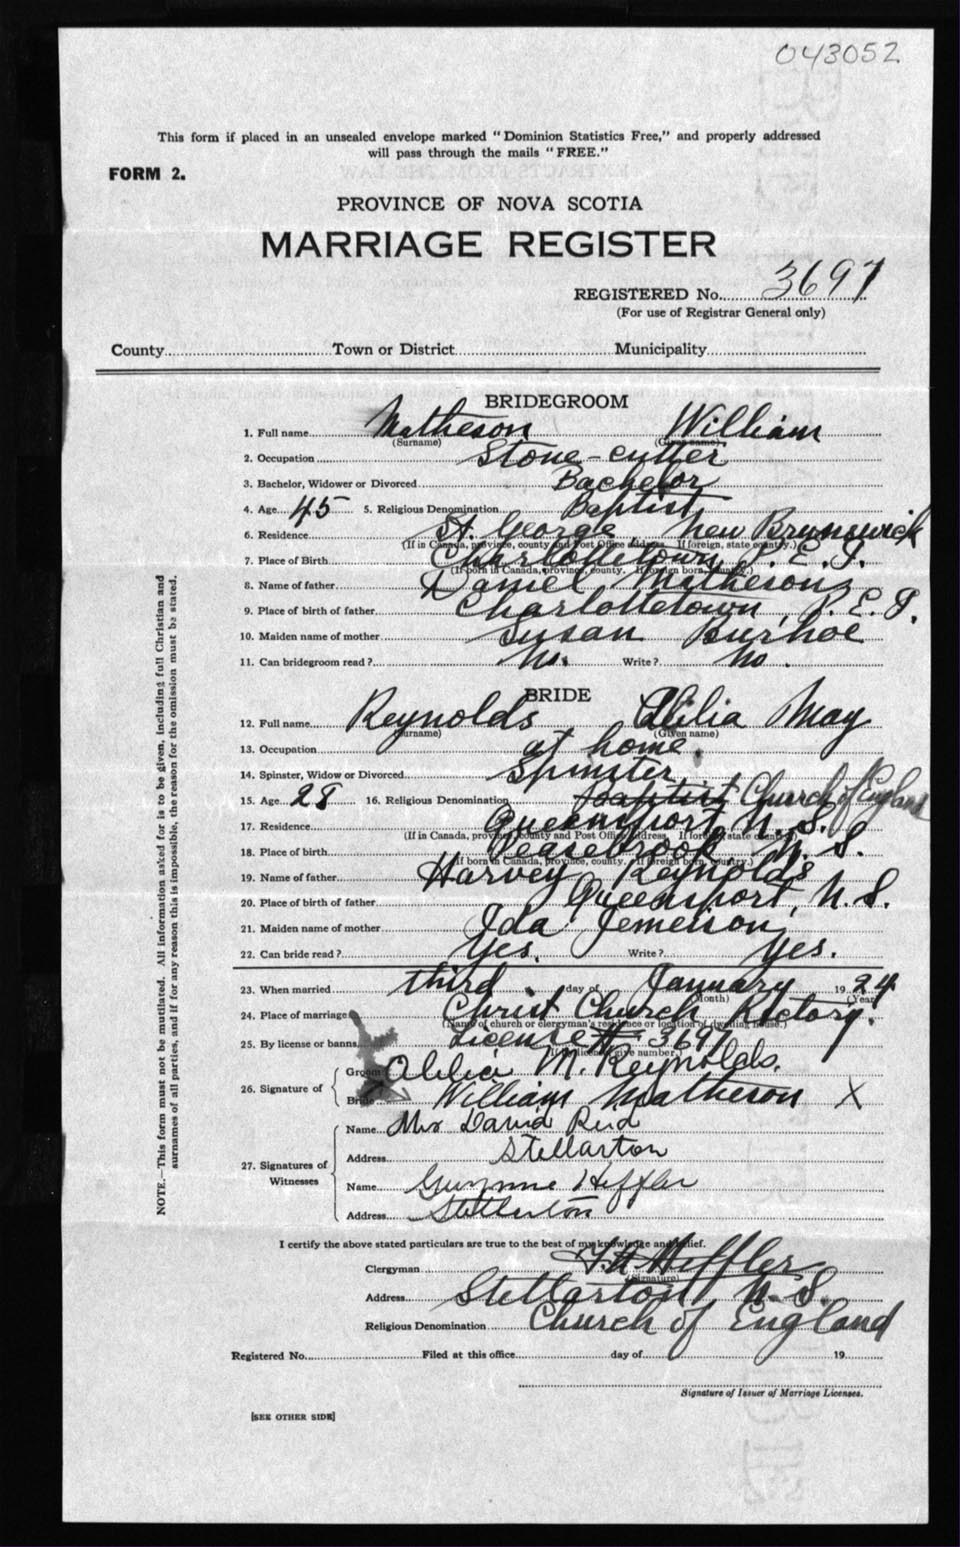 043052
This form if placed in an unsealed envelope marked "Dominion Statistics Free," and properly addressed
will pass through the mails "FREE."
FORM 2.
PROVINCE OF NOVA SCOTIA
MARRIAGE REGISTER
REGISTERED No. 3697
(For use of Registrar General only)
County Town or District Municipality
BRIDEGROOM
1. Full name Matheson William
(Surname) (Given name)
2. Occupation Stone-cutter
3. Bachelor, Widower or Divorced Bachelor
4. Age 45 5. Religious Denomination Baptist
6. Residence St. George, New Brunswick
(If in Canada, province, county and Post Office address. If foreign, state country.)
7. Place of Birth Charlottetown P. E. I.
(If born in Canada, province, county. If foreign born, country.)
8. Name of father Daniel Matheson
9. Place of birth of father Charlottetown, P. E. I.
10. Maiden name of mother Susan Burhoe
11. Can bridegroom read? No. Write? No.
BRIDE
12. Full name Reynolds May
(Surname) (Given name)
13. Occupation at home.
14. Spinster, Widow or Divorced Spinster
15. Age 28 16. Religious Denomination Baptist Church of England
17. Residence Queensport N. S.
(If in Canada, province, county and Post Office address. If foreign, state country)
18. Place of birth Peasebrook N. S.
(If born in Canada, province, county. If foreign born, country.)
19. Name of father Harvey Reynolds
20. Place of birth of father Queensport, N. S.
21. Maiden name of mother Ida Jemeison
22. Can bride read? Yes. Write? Yes.
23. When married third day of January 1924
(Month) (Year)
24. Place of marriage Christ Church Rectory.
(Name of church or clergyman's residence or location of dwelling house.)
25. By license or banns License # 3697
(If license, give number.)
26. Signature of
Groom M. Reynolds.
Bride William Matheson X
27. Signatures of Witnesses
Name Mrs David Reid
Address Stellarton
Name Heffler
Address Stellarton
I certify the above stated particulars are true to the best of my knowledge and belief.
Clergyman Heffler
(Signature)
Address Stellarton N. S.
Religious Denomination Church of England
Registered No. Filed at this office day of 19
Signature of Issuer of Marriage Licenses.
[SEE OTHER SIDE]
NOTE.—This form must not be mutilated. All information asked for is to be given, including full Christian and
surnames of all parties, and if for any reason this is impossible, the reason for the omission must be stated.